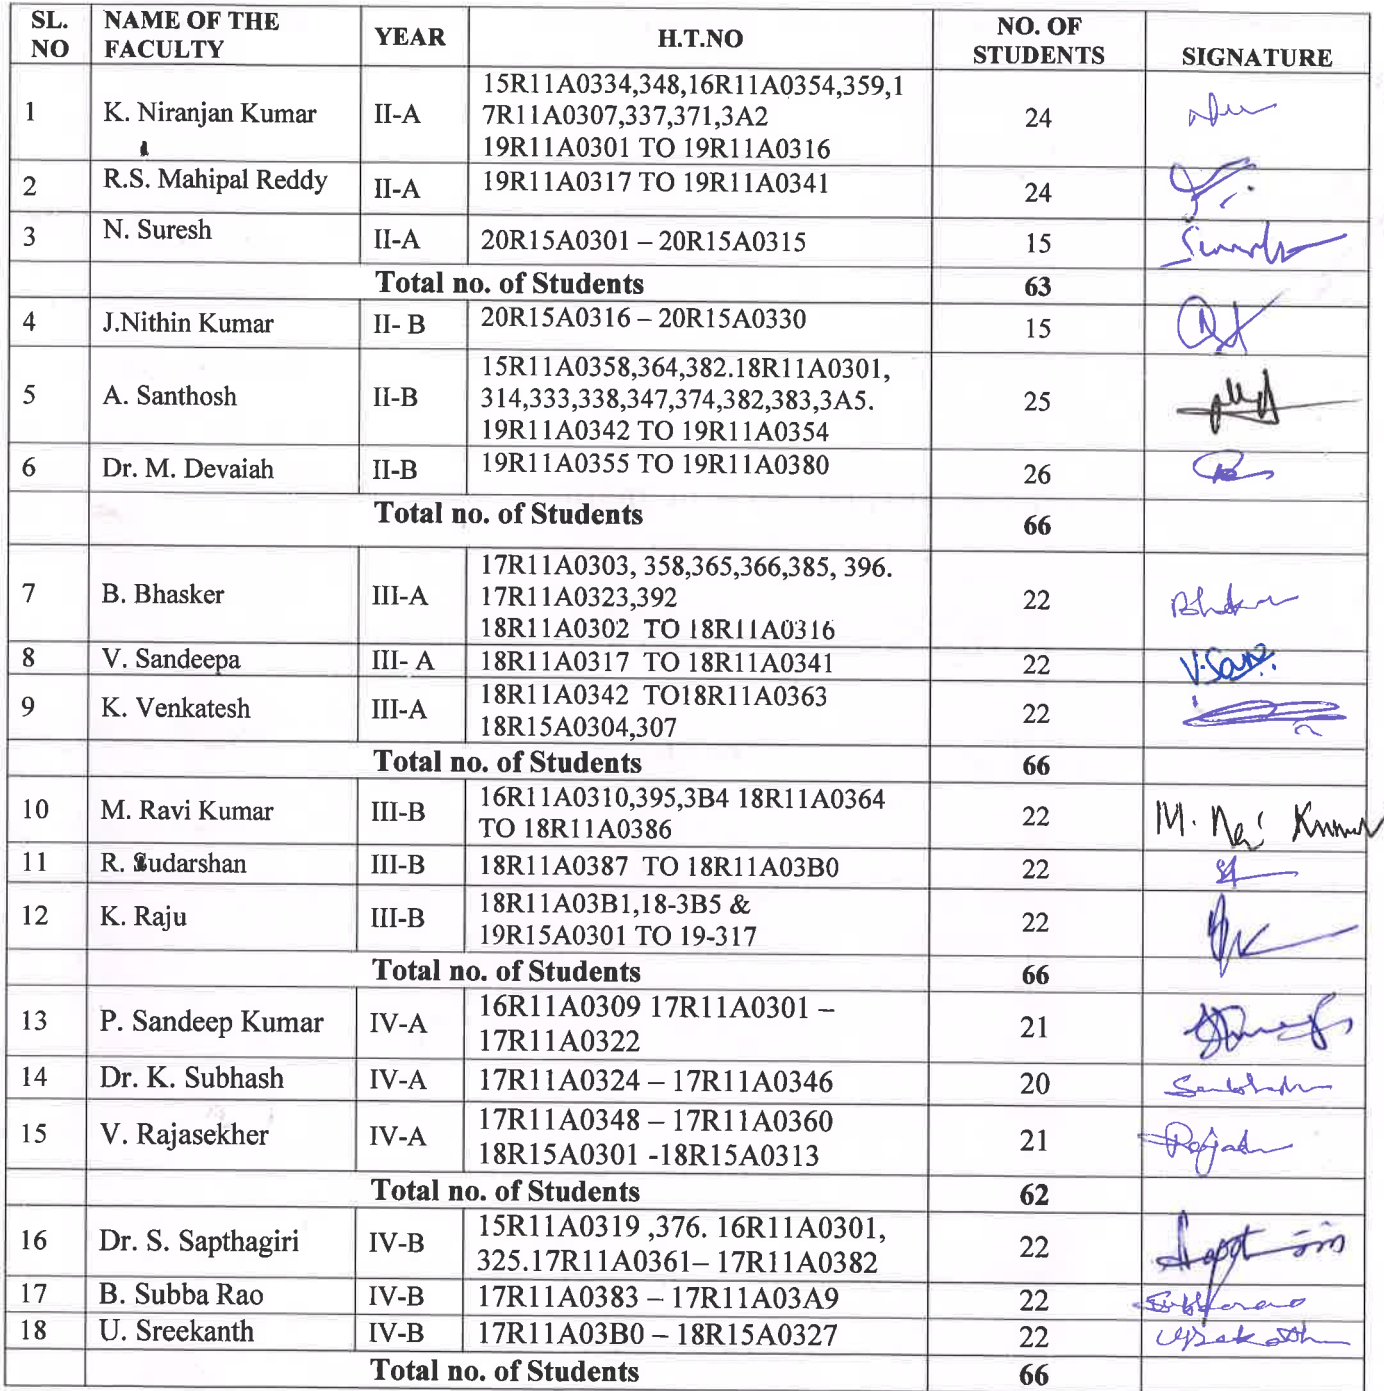 SL. NO NAME OF THE FACULTY YEAR H.T.NO NO. OF STUDENTS SIGNATURE
1 K. Niranjan Kumar II-A 15R11A0334,348,16R11A0354,359,1
7R11A0307,337,371,3A2
19R11A0301 TO 19R11A0316 24
2 R.S. Mahipal Reddy II-A 19R11A0317 TO 19R11A0341 24
3 N. Suresh II-A 20R15A0301 – 20R15A0315 15
Total no. of Students 63
4 J.Nithin Kumar II- B 20R15A0316 – 20R15A0330 15
5 A. Santhosh II-B 15R11A0358,364,382.18R11A0301,
314,333,338,347,374,382,383,3A5.
19R11A0342 TO 19R11A0354 25
6 Dr. M. Devaiah II-B 19R11A0355 TO 19R11A0380 26
Total no. of Students 66
7 B. Bhasker III-A 17R11A0303, 358,365,366,385, 396.
17R11A0323,392
18R11A0302 TO 18R11A0316 22
8 V. Sandeepa III- A 18R11A0317 TO 18R11A0341 22
9 K. Venkatesh III-A 18R11A0342 TO18R11A0363
18R15A0304,307 22
Total no. of Students 66
10 M. Ravi Kumar III-B 16R11A0310,395,3B4 18R11A0364
TO 18R11A0386 22
11 R. Sudarshan III-B 18R11A0387 TO 18R11A03B0 22
12 K. Raju III-B 18R11A03B1,18-3B5 &
19R15A0301 TO 19-317 22
Total no. of Students 66
13 P. Sandeep Kumar IV-A 16R11A0309 17R11A0301 –
17R11A0322 21
14 Dr. K. Subhash IV-A 17R11A0324 – 17R11A0346 20
15 V. Rajasekher IV-A 17R11A0348 – 17R11A0360
18R15A0301 -18R15A0313 21
Total no. of Students 62
16 Dr. S. Sapthagiri IV-B 15R11A0319 ,376. 16R11A0301,
325.17R11A0361– 17R11A0382 22
17 B. Subba Rao IV-B 17R11A0383 – 17R11A03A9 22
18 U. Sreekanth IV-B 17R11A03B0 – 18R15A0327 22
Total no. of Students 66